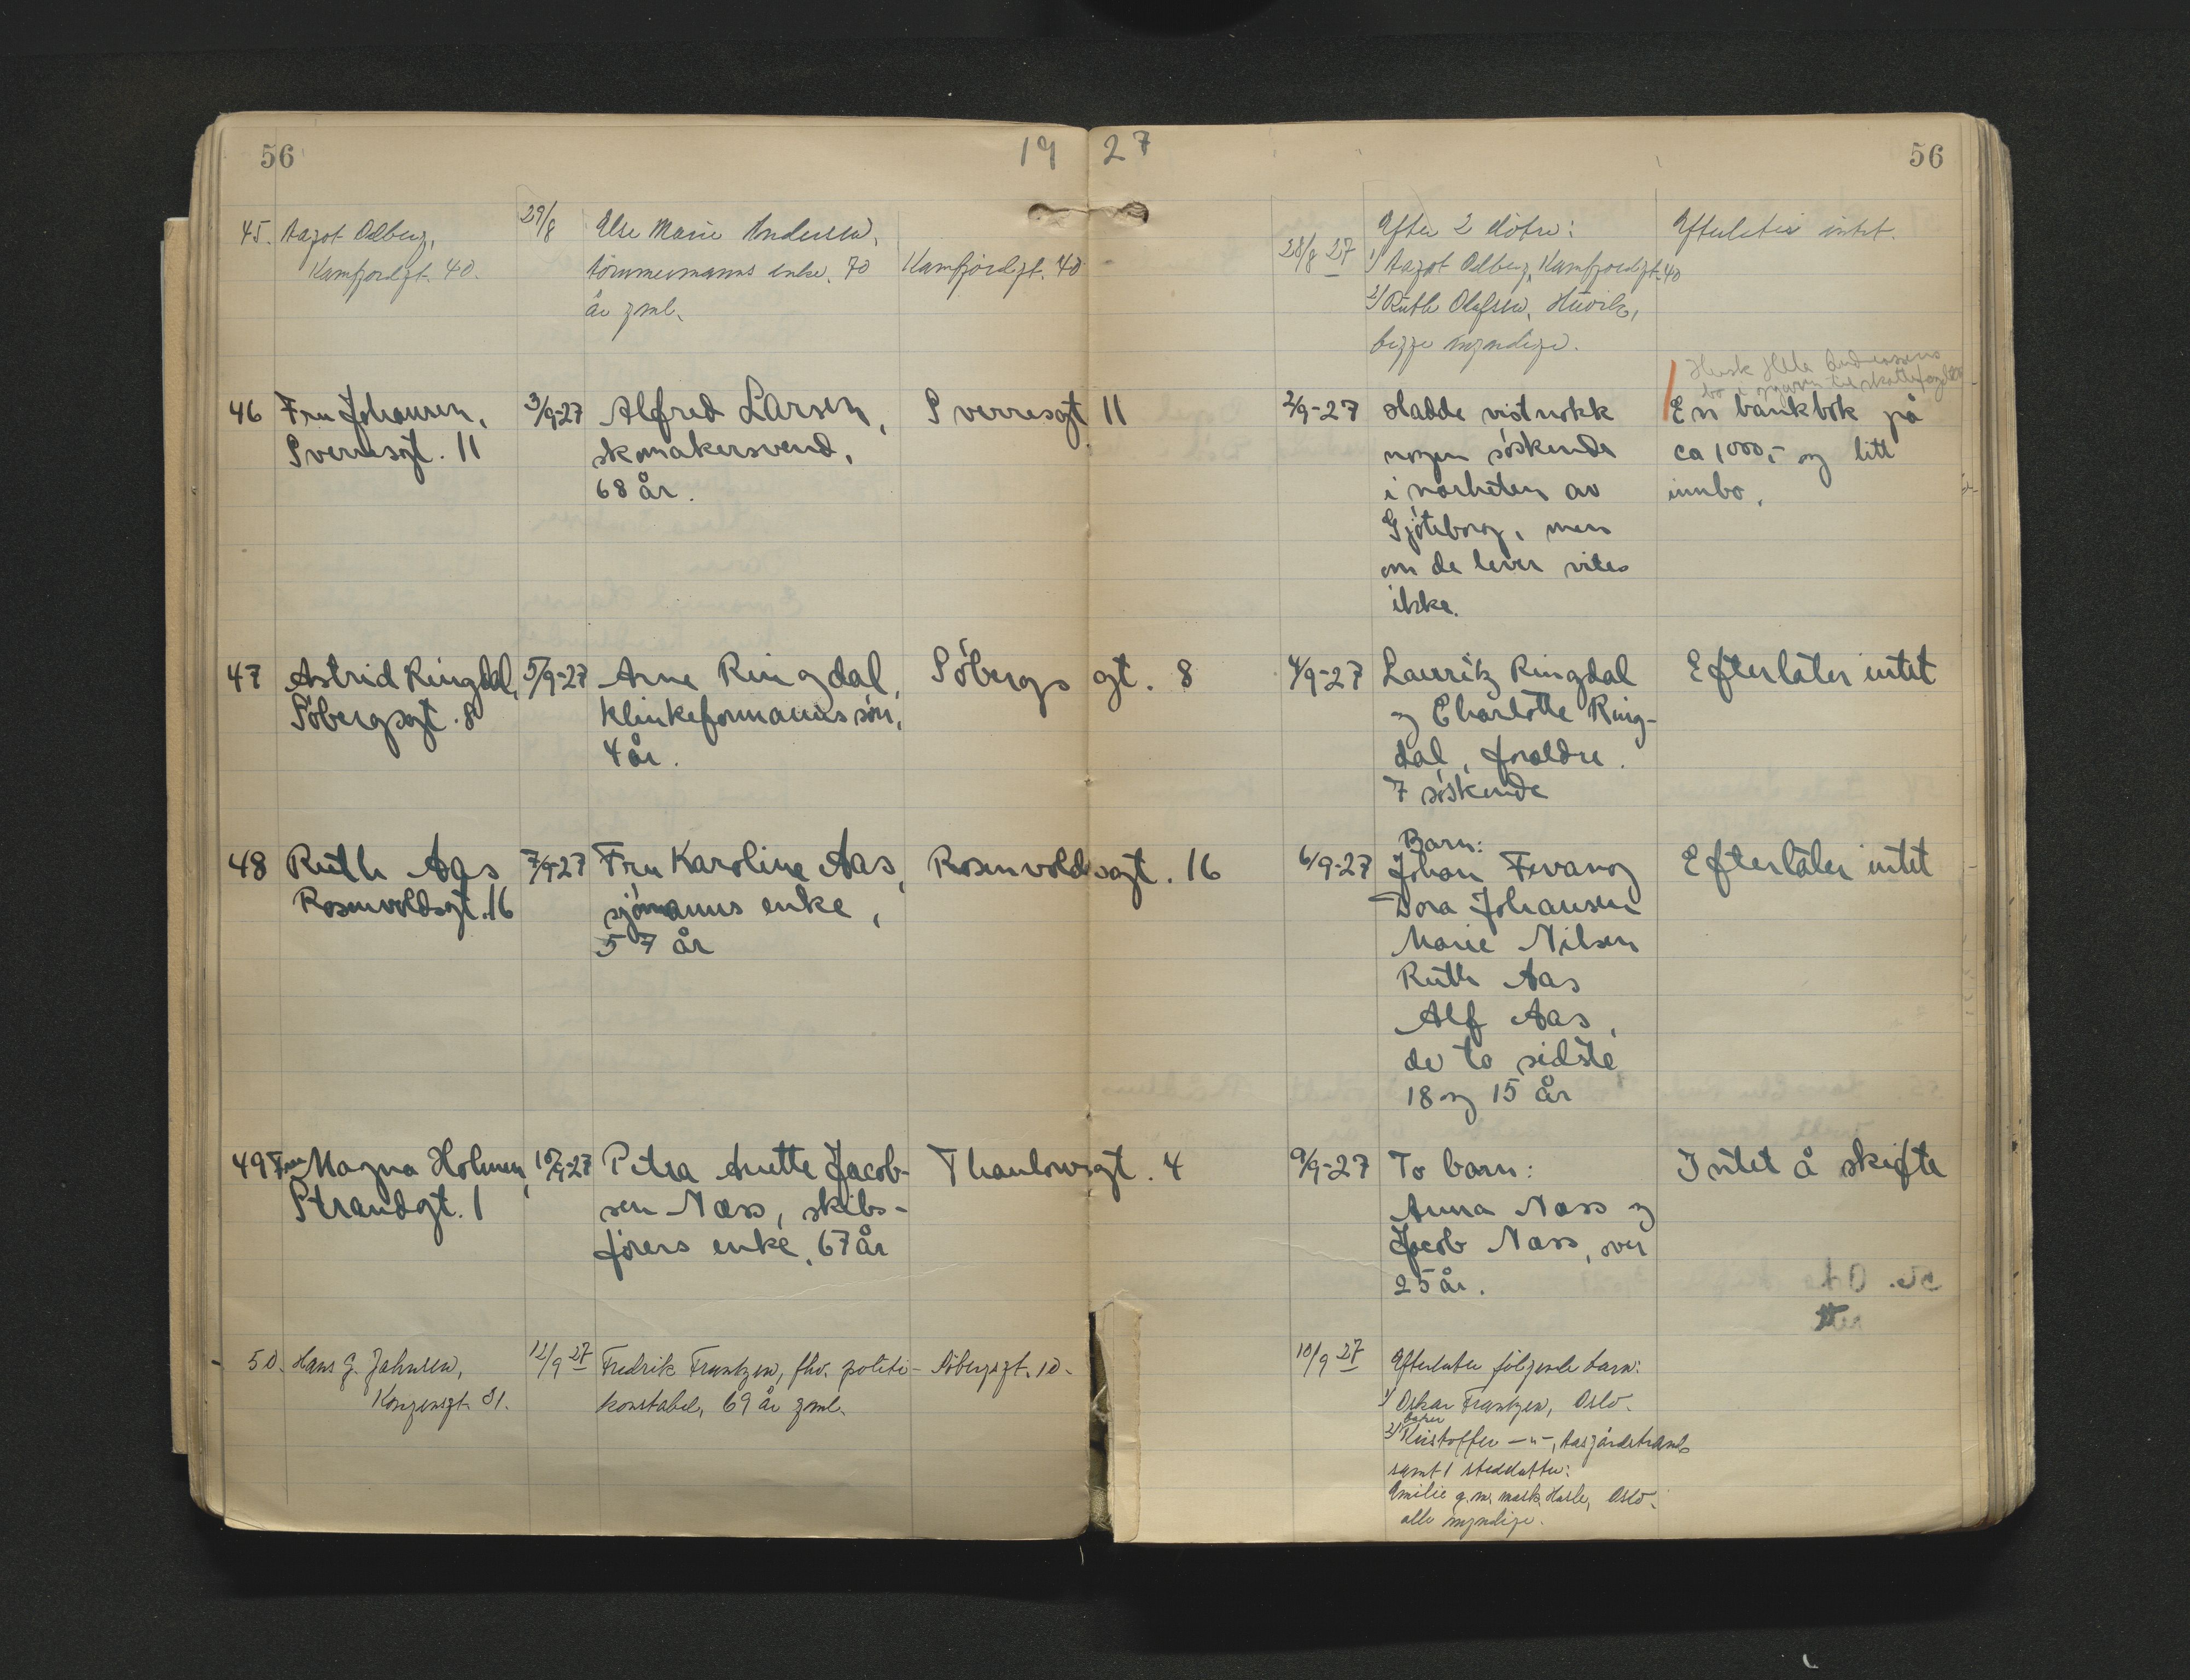 56
19 27
56
45. Aagot Odberg,
Kamfjordgt. 40.
29/8
Else Marie Andersen,
tömmermanns enke. 70
år gml.
Kamfjordgt. 40
28/8 27
Efter 2 döttre:
1/ Aagot Odberg, Kamfjordgt. 40
2/ Ruth Olafsen,
begge myndige.
Efterlater intet.
Husk
46 Fru Johansen,
Sverresgt. 11
3/9-27
Alfred Larsen,
skomakersvend,
68 år.
Sverresgt 11
2/9-27
Hadde vistnokk
nogen söskende
i nærheten av
Gjöteborg, men
om de lever vites
ikke.
En bankbok på
ca 1000,- og litt
innbo.
47 Astrid Ringdal,
Söbergsgt. 8
5/9-27
Arne Ringdal,
klinkeformanns sön,
4 år.
Söbergsgt. 8
4/9-27
Lauritz Ringdal
og Charlotte Ring-
dal, foreldre.
7 söskende
Efterlater intet
48 Ruth Aas
Rosenvoldsgt. 16
7/9-27
Fru Karoline Aas,
sjömanns enke,
57 år
Rosenvoldsgt. 16
6/9-27
Barn:
Johan Fevang
Dora Johansen
Marie Nilsen
Ruth Aas
Alf Aas,
de to sidste
18 og 15 år
Efterlater intet
49 Fru Magna Holmen,
Strandgt. 1
10/9-27
Petra Anette Jacob-
sen Næss, skibs-
förers enke, 67 år
Thaulowsgt. 4
9/9-27
To barn:
Anna Næss og
Jacob Næss, over
25 år.
Intet å skifte
50. Hans G. Jahnsen,
Kongensgt. 31.
12/9 27
Fredrik Frantzen, fhv. politi-
konstabel, 69 år gml.
Söbergsgt. 10.
10/9 27
Efterlater fölgende barn:
1/ Oskar Frantzen, Oslo.
baker
2/ Kristoffer —"—, Aasgårdstrand
samt 1 steddatter:
Emilie g.m. mask. Hasle, Oslo.
alle myndige.